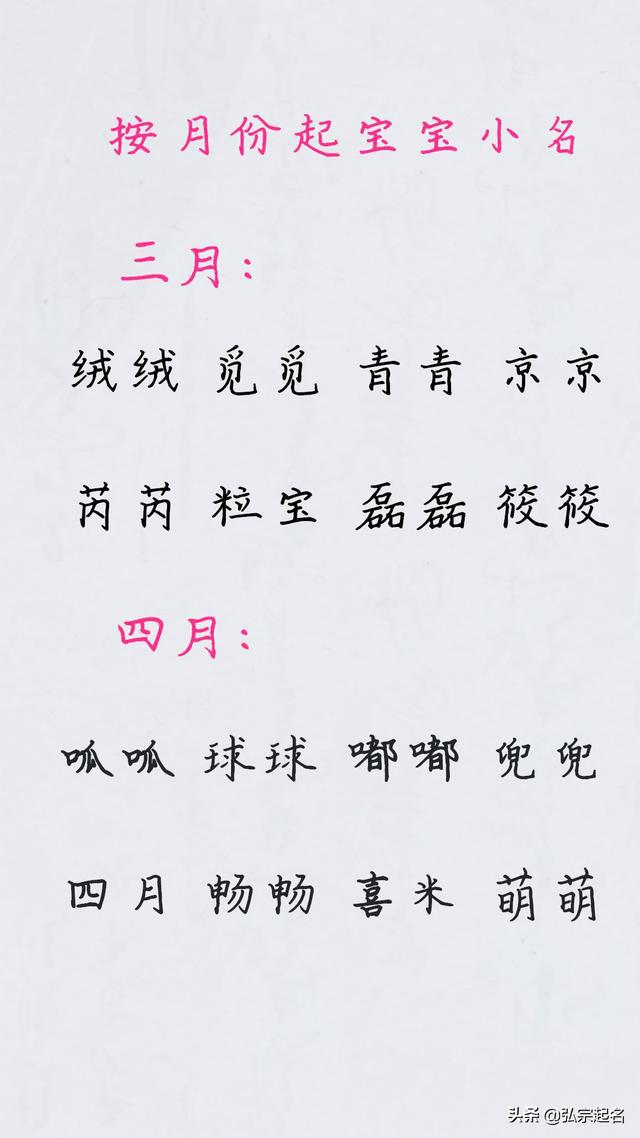 按月份起宝宝小名
三月：
绒绒 觅觅 青青 京京
芮芮 粒宝 磊磊 筱筱
四月：
呱呱 球球 嘟嘟 兜兜
四月 畅畅 喜米 萌萌
头条 @弘宗起名